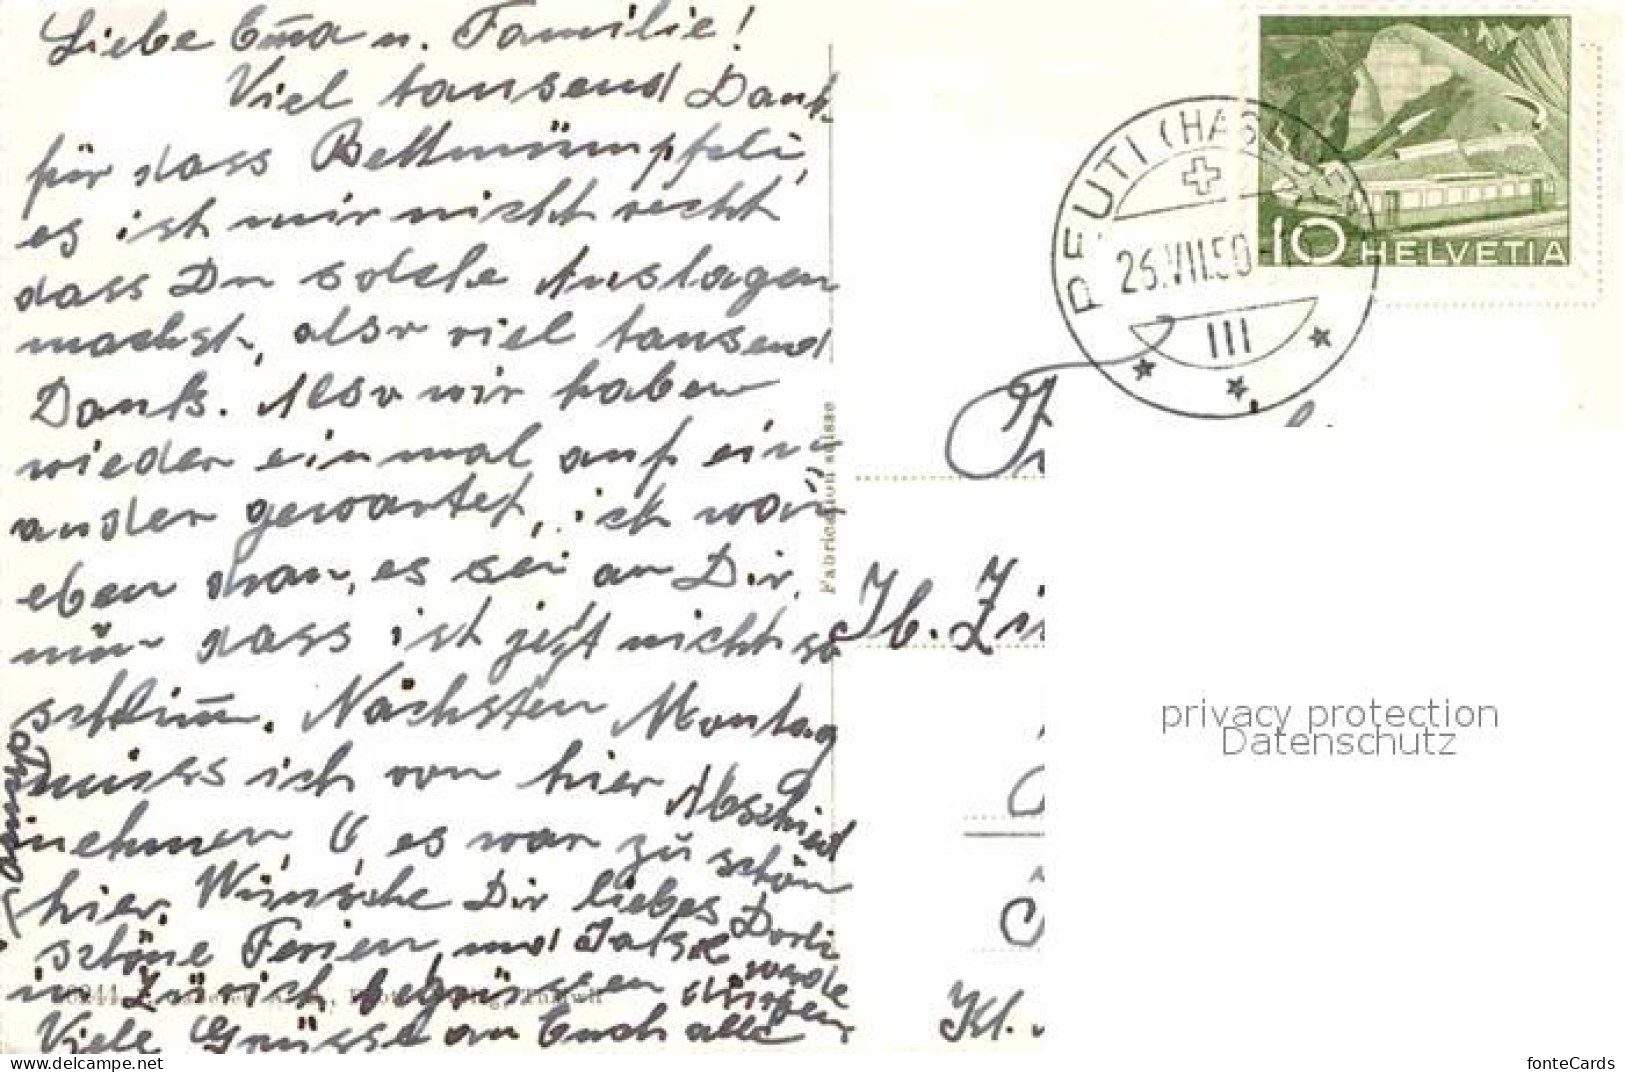 Liebe Em̄a u. Familie!
Viel tausend Dank
für dass Bettmümpfeli,
es ist mir nicht recht
dass Du solche Auslagen
machst, also viel tausend
Dank. Also wir haben
wieder einmal auf ein-
ander gewartet, ich war
eben dran, es sei an Dir,
nun dass ist jetzt nicht so
schlim̄. Nächsten Montag
muss ich von hier Abschied
nehmen, O, es war zu schön
hier. Wünsche Dir liebes Dorli
schöne Ferien, und werde
in Zürich begrüssen dürfen
Viele Grüsse an Euch alle
Fabrication suisse
REUTI (HASLIBERG)
26.VII.50
III
10 HELVETIA
Kl.
privacy protection
Datenschutz
fonteCards